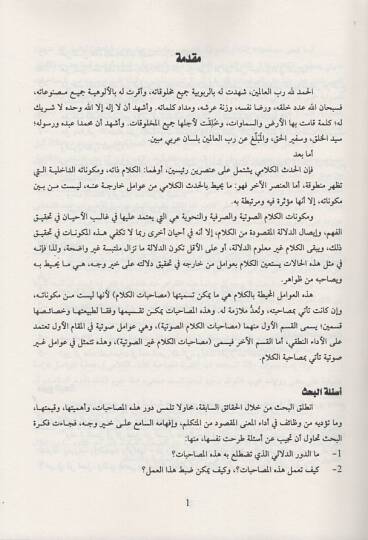 مقدمة
الحمد لله رب العالمين، شهدت له بالربوبية جميع مخلوقاته، وأقرت له بالألوهية جميع مصنوعاته،
فسبحان الله عدد خلقه، ورضا نفسه، وزنة عرشه، ومداد كلماته. وأشهد أن لا إله إلا الله وحده لا شريك
له؛ كلمة قامت بها الأرض والسماوات، وخُلِقَت لأجلها جميع المخلوقات. وأشهد أن محمدا عبده ورسوله؛
سيد الخلق، وسفير الحق، والمبلّغ عن رب العالمين بلسان عربي مبين.
أما بعد
فإن الحدث الكلامي يشتمل على عنصرين رئيسين، أولهما: الكلام ذاته، ومكوناته الداخلية التي
تظهر منطوقة، أما العنصر الآخر فهو: ما يحيط بالحدث الكلامي من عوامل خارجة عنه، ليست من بين
مكوناته، إلا أنها مؤثرة فيه ومرتبطة به.
ومكونات الكلام الصوتية والصرفية والنحوية هي التي يعتمد عليها في غالب الأحيان في تحقيق
الفهم، وإيصال الدلالة المقصودة من الكلام، إلا أنه في أحيان أخرى ربما لا تكفي هذه المكونات في تحقيق
ذلك، ويبقى الكلام غير معلوم الدلالة، أو على الأقل تكون الدلالة ما تزال ملتبسة غير واضحة، ولذا فإنه
في مثل هذه الحالات يستعين الكلام بعوامل من خارجه في تحقيق دلالته على خير وجه، هي ما يحيط به
ويصاحبه من ظواهر.
هذه العوامل المحيطة بالكلام هي ما يمكن تسميتها (مصاحبات الكلام) لأنها ليست من مكوناته،
وإن كانت تأتي بصحبته، وتُعدُّ ملازمة له. وهذه المصاحبات يمكن تقسيمها وفقا لطبيعتها وخصائصها
قسمين؛ يسمى القسم الأول منهما (مصاحبات الكلام الصوتية)، وهي عوامل صوتية في المقام الأول تعتمد
على الأداء النطقي، أما القسم الآخر فيسمى (مصاحبات الكلام غير الصوتية)، وهذه تتمثل في عوامل غير
صوتية تأتي بمصاحبة الكلام.
أسئلة البحث
انطلق البحث من خلال الحقائق السابقة، محاولا تلمس دور هذه المصاحبات، وأهميتها، وقيمتها،
وما تؤديه من وظائف في أداء المعنى المقصود من المتكلم، وإفهامه السامع على خير وجه، فجاءت فكرة
البحث تحاول أن تجيب عن أسئلة طرحت نفسها، منها:
1- ما الدور الدلالي الذي تضطلع به هذه المصاحبات؟
2- كيف تعمل هذه المصاحبات؟، وكيف يمكن ضبط هذا العمل؟
1